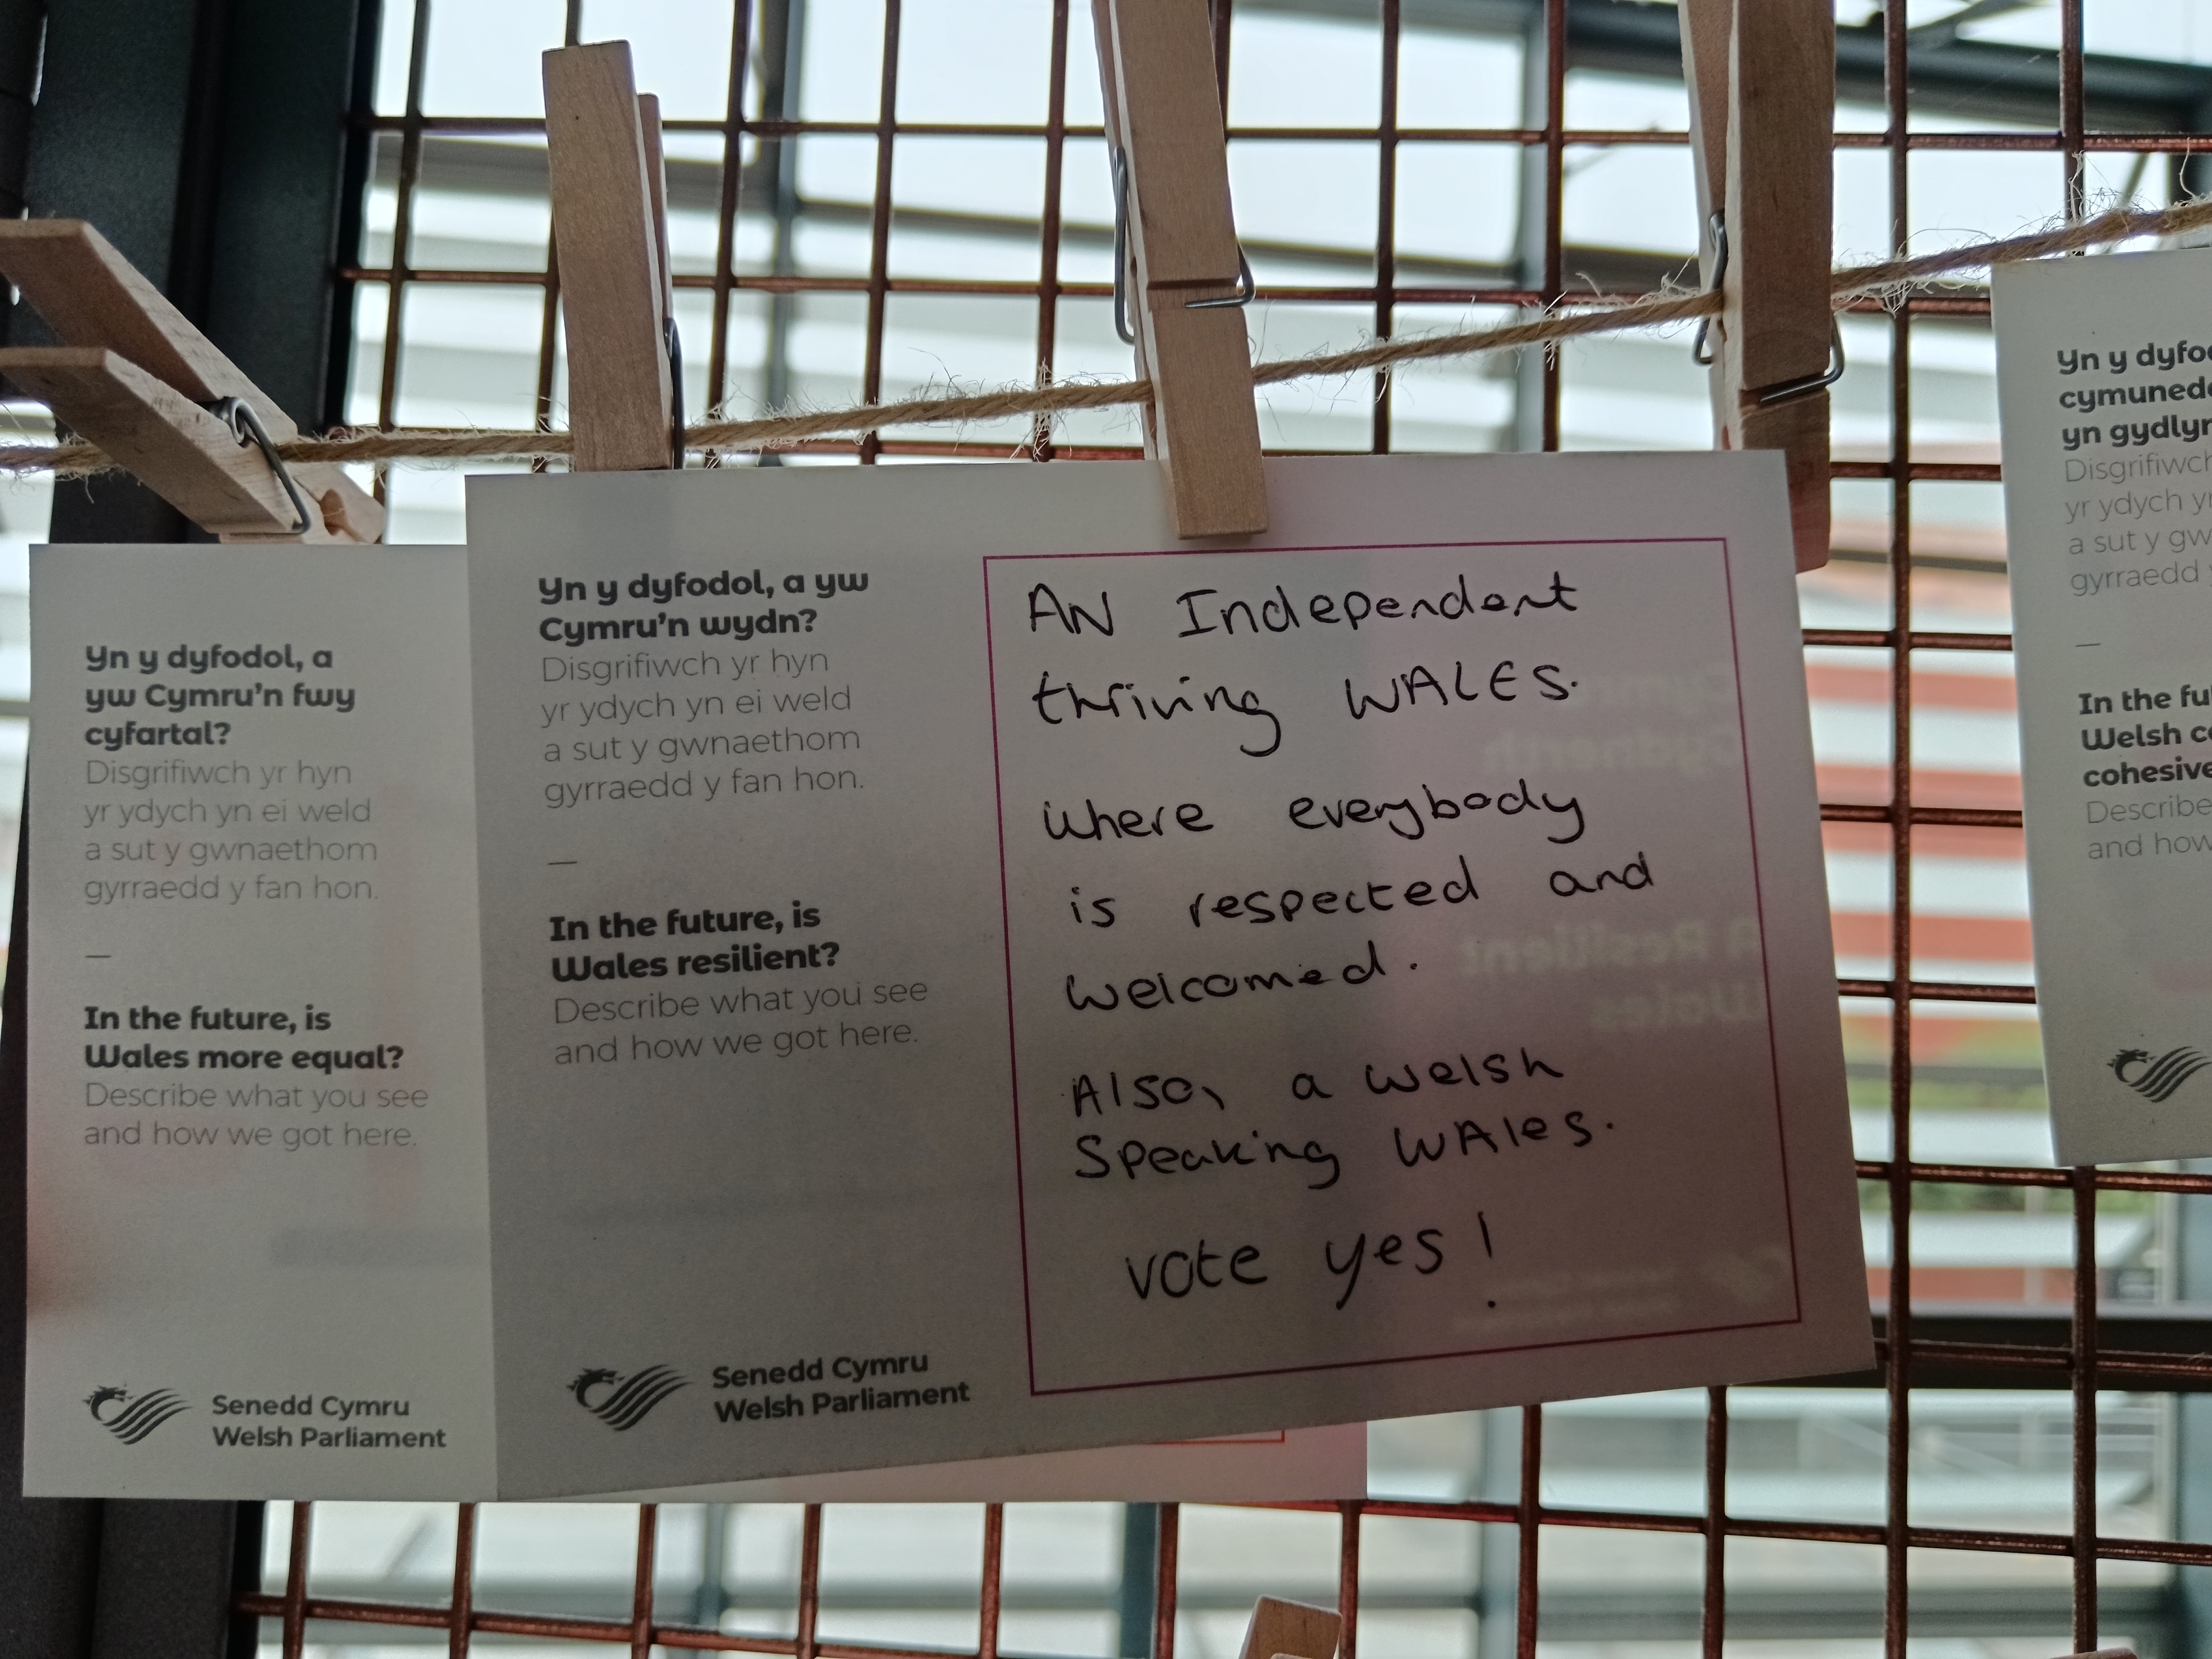 Yn y dyfodol, a
yw Cymru'n fwy
cyfartal?
Disgrifiwch yr hyn
yr ydych yn ei weld
a sut y gwnaethom
gyrraedd y fan hon.
—
In the future, is
Wales more equal?
Describe what you see
and how we got here.
Senedd Cymru
Welsh Parliament
Yn y dyfodol, a yw
Cymru'n wydn?
Disgrifiwch yr hyn
yr ydych yn ei weld
a sut y gwnaethom
gyrraedd y fan hon.
—
In the future, is
Wales resilient?
Describe what you see
and how we got here.
Senedd Cymru
Welsh Parliament
AN Independent
thriving WALES.
Where everybody
is respected and
welcomed.
Also, a welsh
Speaking WAles.
vote yes!
A Resilient
Wales
Yn y
Disgrifiwch
yr ydych
a sut y
gyrraedd
—
In the
Welsh
cohesive
Describe
and how